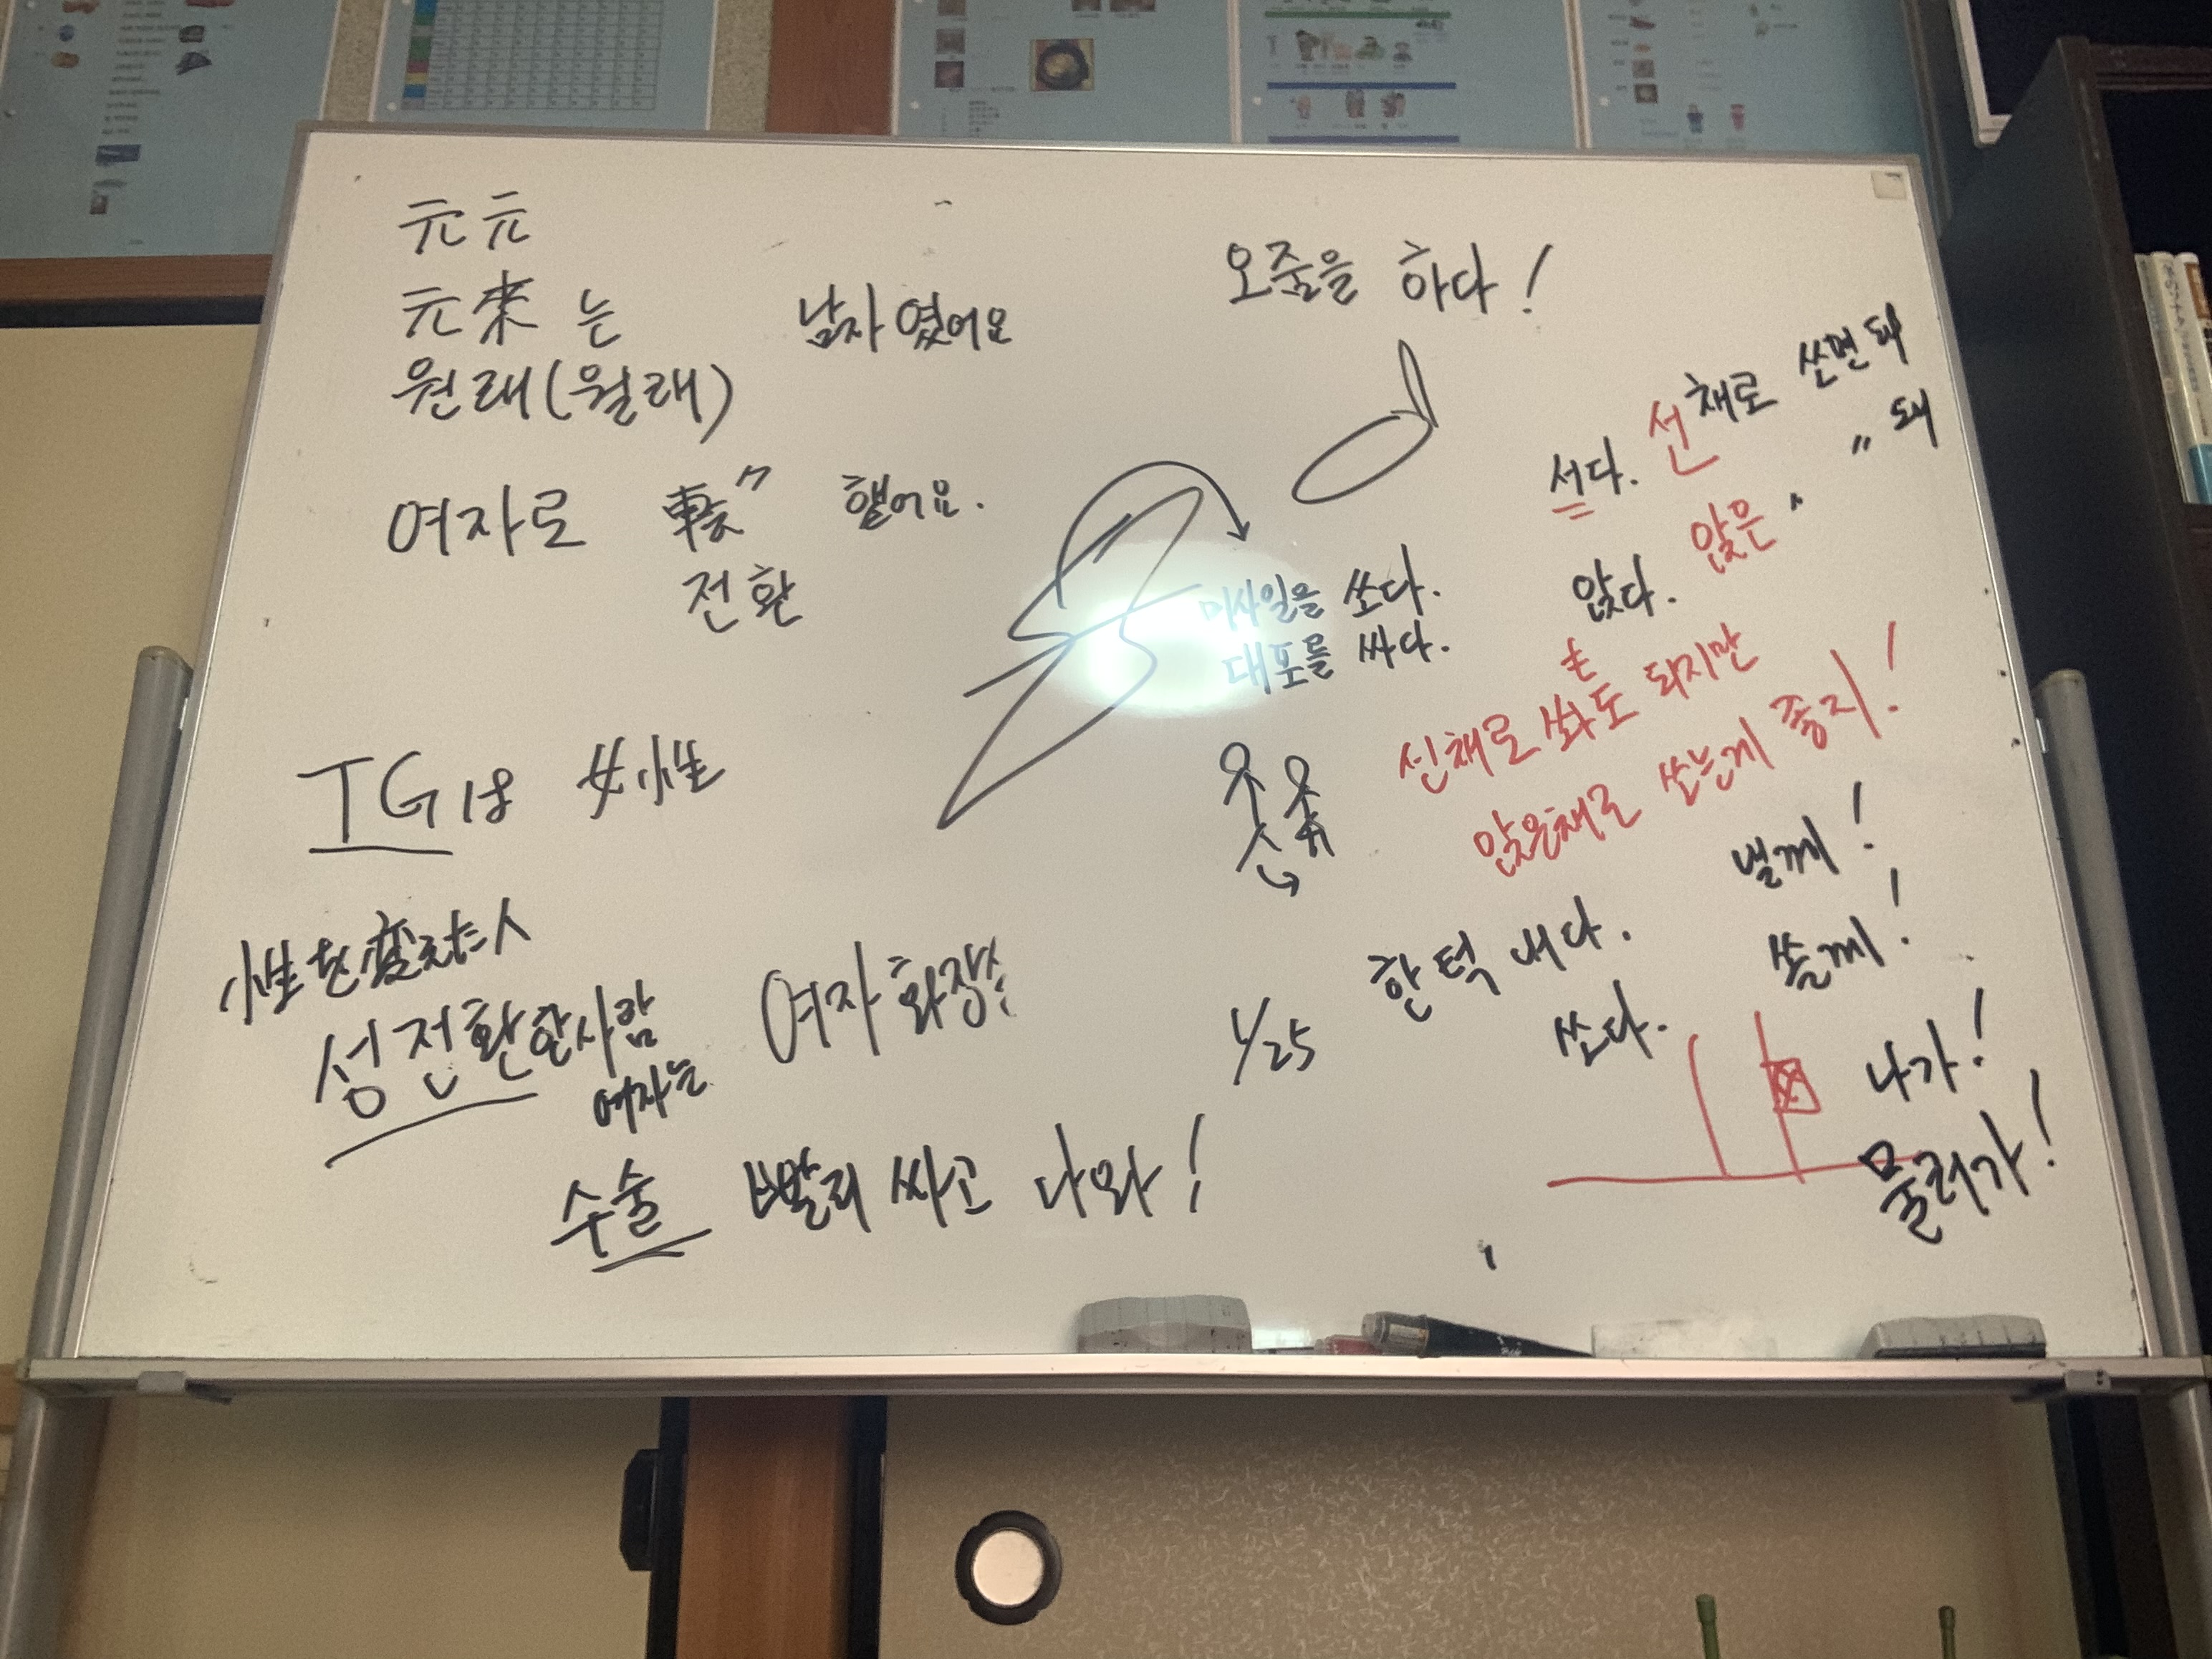 元元
元來 는 남자였어요
원래(월래)
여자로 하였어요.
전환
TGは 女性
性を変えた人
성전환한사람
여자는
여자화장실
수술 빨리 싸고 나와!
오줌을 하다!
서다. 선채로 쏘면 돼
앉다. 앉은 〃 〃 돼
미사일을 쏘다.
대포를 싸다.
선채로 쏴도 되지만
앉은채로 쏘는게 좋지!
1/25
한턱 내다. 낼께!
쏘다. 쏠께!
나가!
물러가!